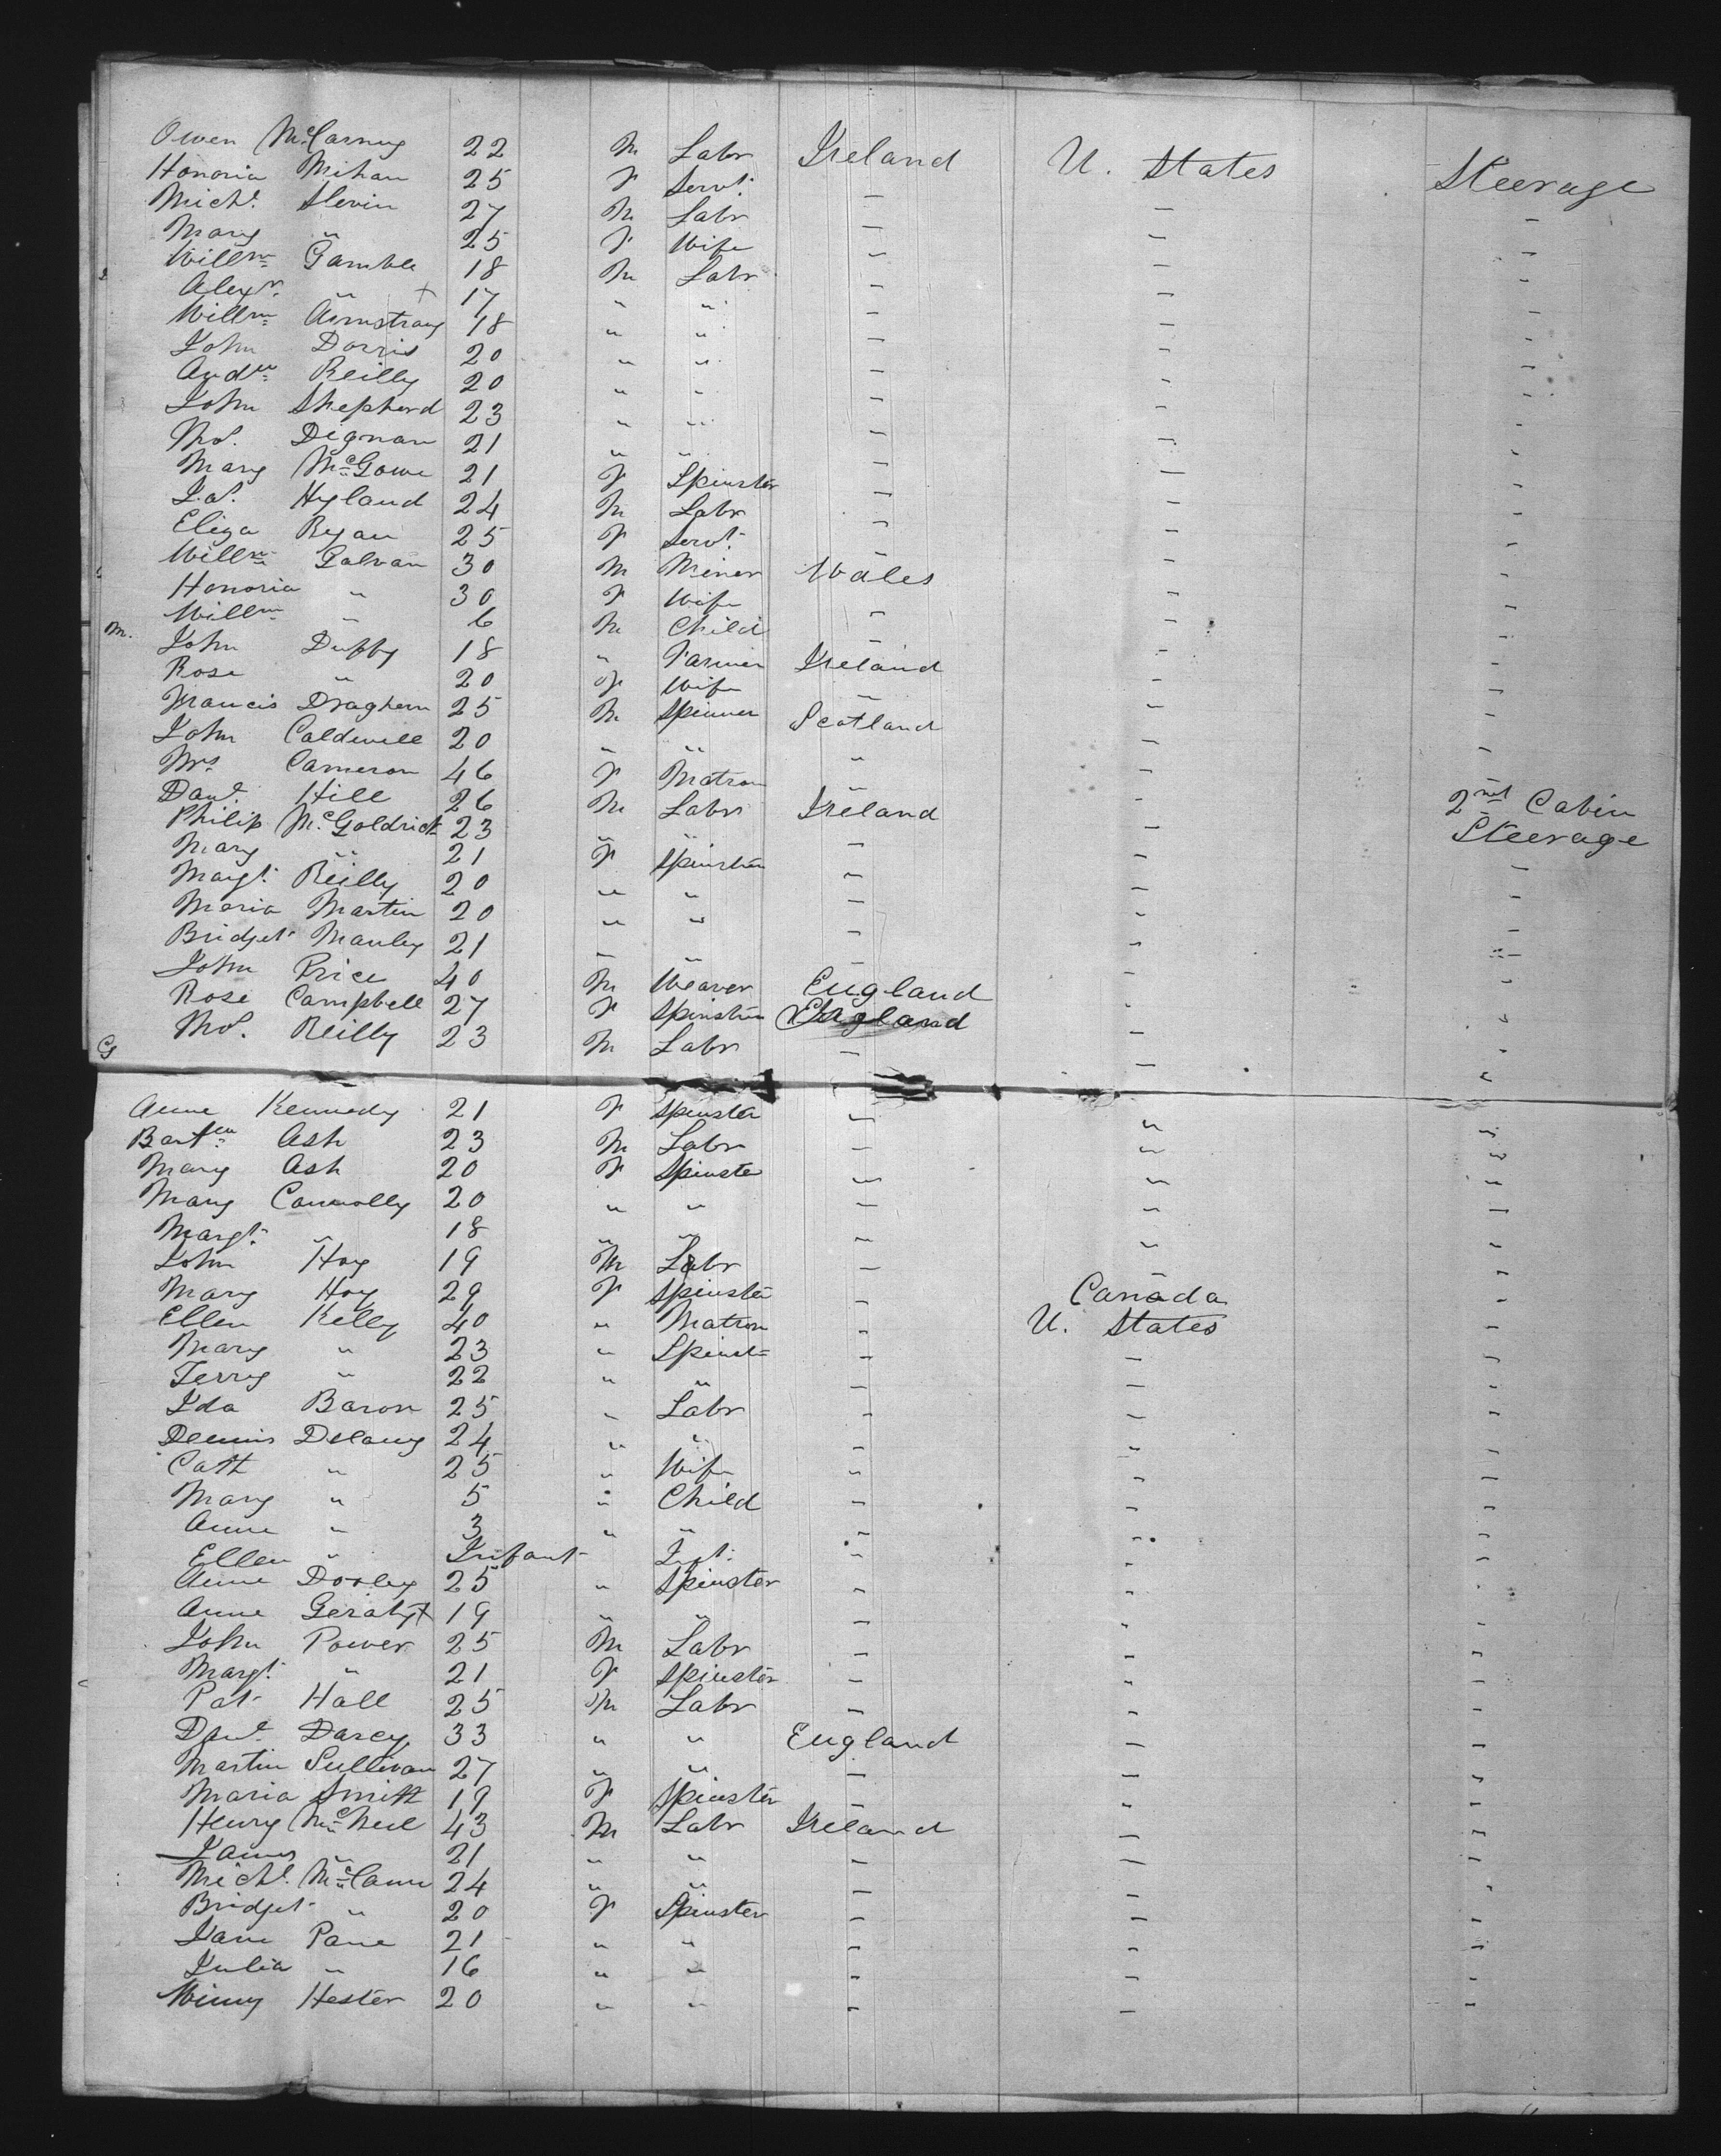 Owen McCarney 22 M Labr Ireland U. States Steerage
Honoria Mihan 25 F Servt. — — —
Michl. Slevin 27 M Labr — — —
Mary " 25 F Wife — — —
Willm Gamble 18 M Labr — — —
Alexr. " + 17 " " — — —
Willm Armstrong 18 " " — — —
John Dorris 20 " " — — —
Andw Reilly 20 " " — — —
John Shepherd 23 " " — — —
Thos. Dignan 21 " " — — —
Mary McGowe 21 F Spinster — — —
Jas. Hyland 24 M Labr — — —
Eliza Ryan 25 F Servt. — — —
Willm Galvan 30 M Miner Wales — —
Honoria " 30 F Wife — — —
Willm " 6 M Child — — —
M. John Duffy 18 " Farmer Ireland — —
Rose " 20 F Wife — — —
Francis 25 M Spinner Scotland — —
John Caldwell 20 " " — — —
Mrs Cameron 46 F Matron — — 2nd Cabin
Danl Hill 26 M Labr Ireland — Steerage
Philip McGoldrick 23 " " — — —
Mary " 21 F Spinster — — —
Margt. Reilly 20 " " — — —
Maria Martin 20 " " — — —
Bridget Manley 21 " " — — —
John Price 40 M Weaver England — —
Rose Campbell 27 F Spinster England — —
Thos. Reilly 23 M Labr — — —
Anne Kennedy 21 F Spinster — " "
Bartw Ash 23 M Labr — " "
Mary Ash 20 F Spinste — " "
Mary Connolly 20 " " — " —
Margt. " 18 " " — " "
John Hoy 19 M Labr — " —
Mary Hoy 29 F Spinster — Canada —
Ellen Kelly 40 " Matron — U. States —
Mary " 23 " Spinst — — —
Terry " 22 " " — — —
Ida Baron 25 " Labr — — —
Dennis Delany 24 " " — — —
Cath " 25 " Wife — — —
Mary " 5 " Child — — —
Anne " 3 " " — — —
Ellen " Infant Inft. — — —
Anne Dooley 25 " Spinster — — —
Anne Geraty + 19 " " — — —
John Power 25 M Labr — — —
Margt. " 21 F Spinster — — —
Pat Hall 25 M Labr — — —
Danl. Darcy 33 " " England — —
Martin Sullivan 27 " " — — —
Maria Smith 19 F Spinster — — —
Henry McNeil 43 M Labr Ireland — —
James " 21 " " — — —
Michl. McCann 24 " " — — —
Bridget " 20 F Spinster — — —
Jane Pane 21 " " — — —
Julia " 16 " " — — —
Winny Hester 20 " " — — —